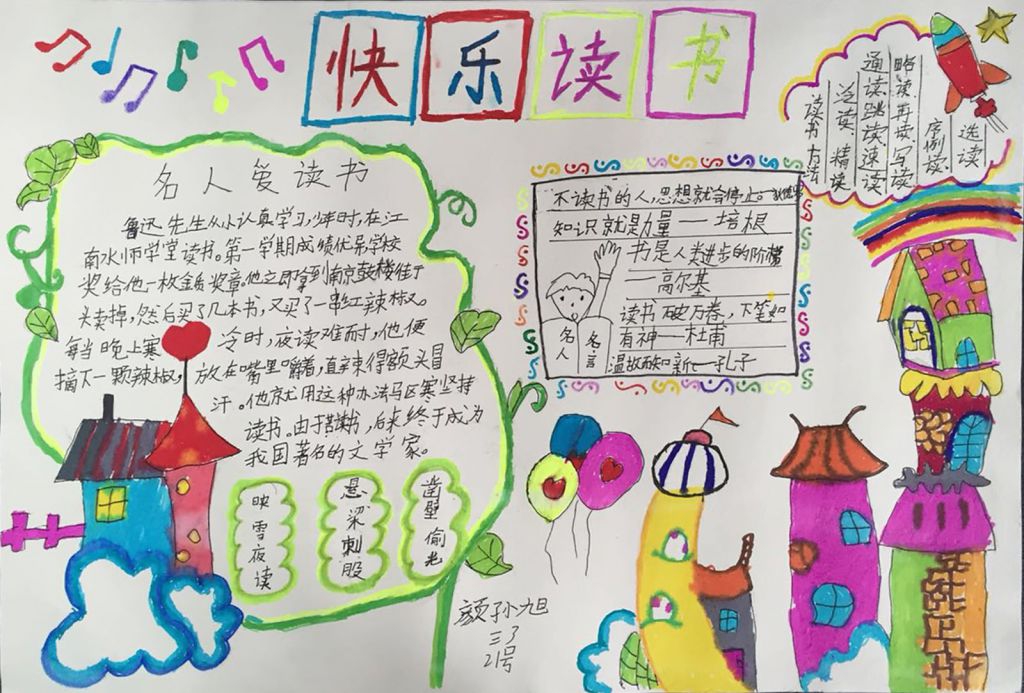 快乐读书
名人爱读书
鲁迅先生从小认真学习,少年时,在江
南水师学堂读书。第一学期成绩优异学校
奖给他一枚金质奖章。他立即拿到南京鼓楼街于
头卖掉,然后买了几本书,又买了一串红辣椒。
每当晚上寒冷时,夜读难而耐,他便
摘下一颗辣椒,放在嘴里嚼着,直辣得额头冒
汗。他就用这种办法马区寒坚持
读书。由于苦读书,后来终于成为
我国著名的文学家。
映雪夜读
悬梁刺股
凿壁偷光
不读书的人,思想就会停止。
知识就是力量——培根
书是人类进步的阶梯
——高尔基
读书破万卷,下笔如
有神——杜甫
温故而知新——孔子
名人
名言
读书方法
泛读 精读
通读 跳读 速读
略读 再读 写读
序例读
选读
颜孙旭
三3
21号